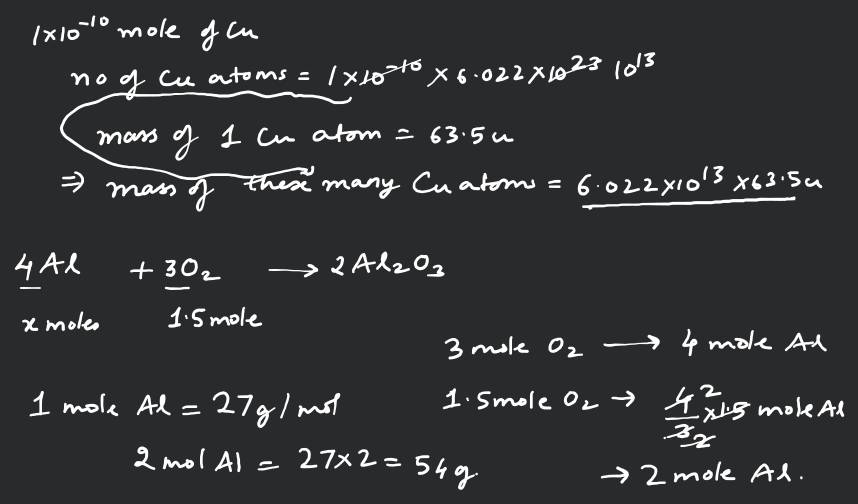 1×10⁻¹⁰ mole of Cu
no of Cu atoms = 1×10⁻¹⁰ × 6.022×10²³ 10¹³
mass of 1 Cu atom = 63.5u
⇒ mass of these many Cu atoms = 6.022×10¹³ ×63.5u
4Al + 3O₂ → 2Al₂O₃
x moles 1.5 mole
3 mole O₂ → 4 mole Al
1 mole Al = 27g/mol
1.5 mole O₂ → 4/3 × 1.5 mole Al
2 mol Al = 27×2 = 54g.
→ 2 mole Al.